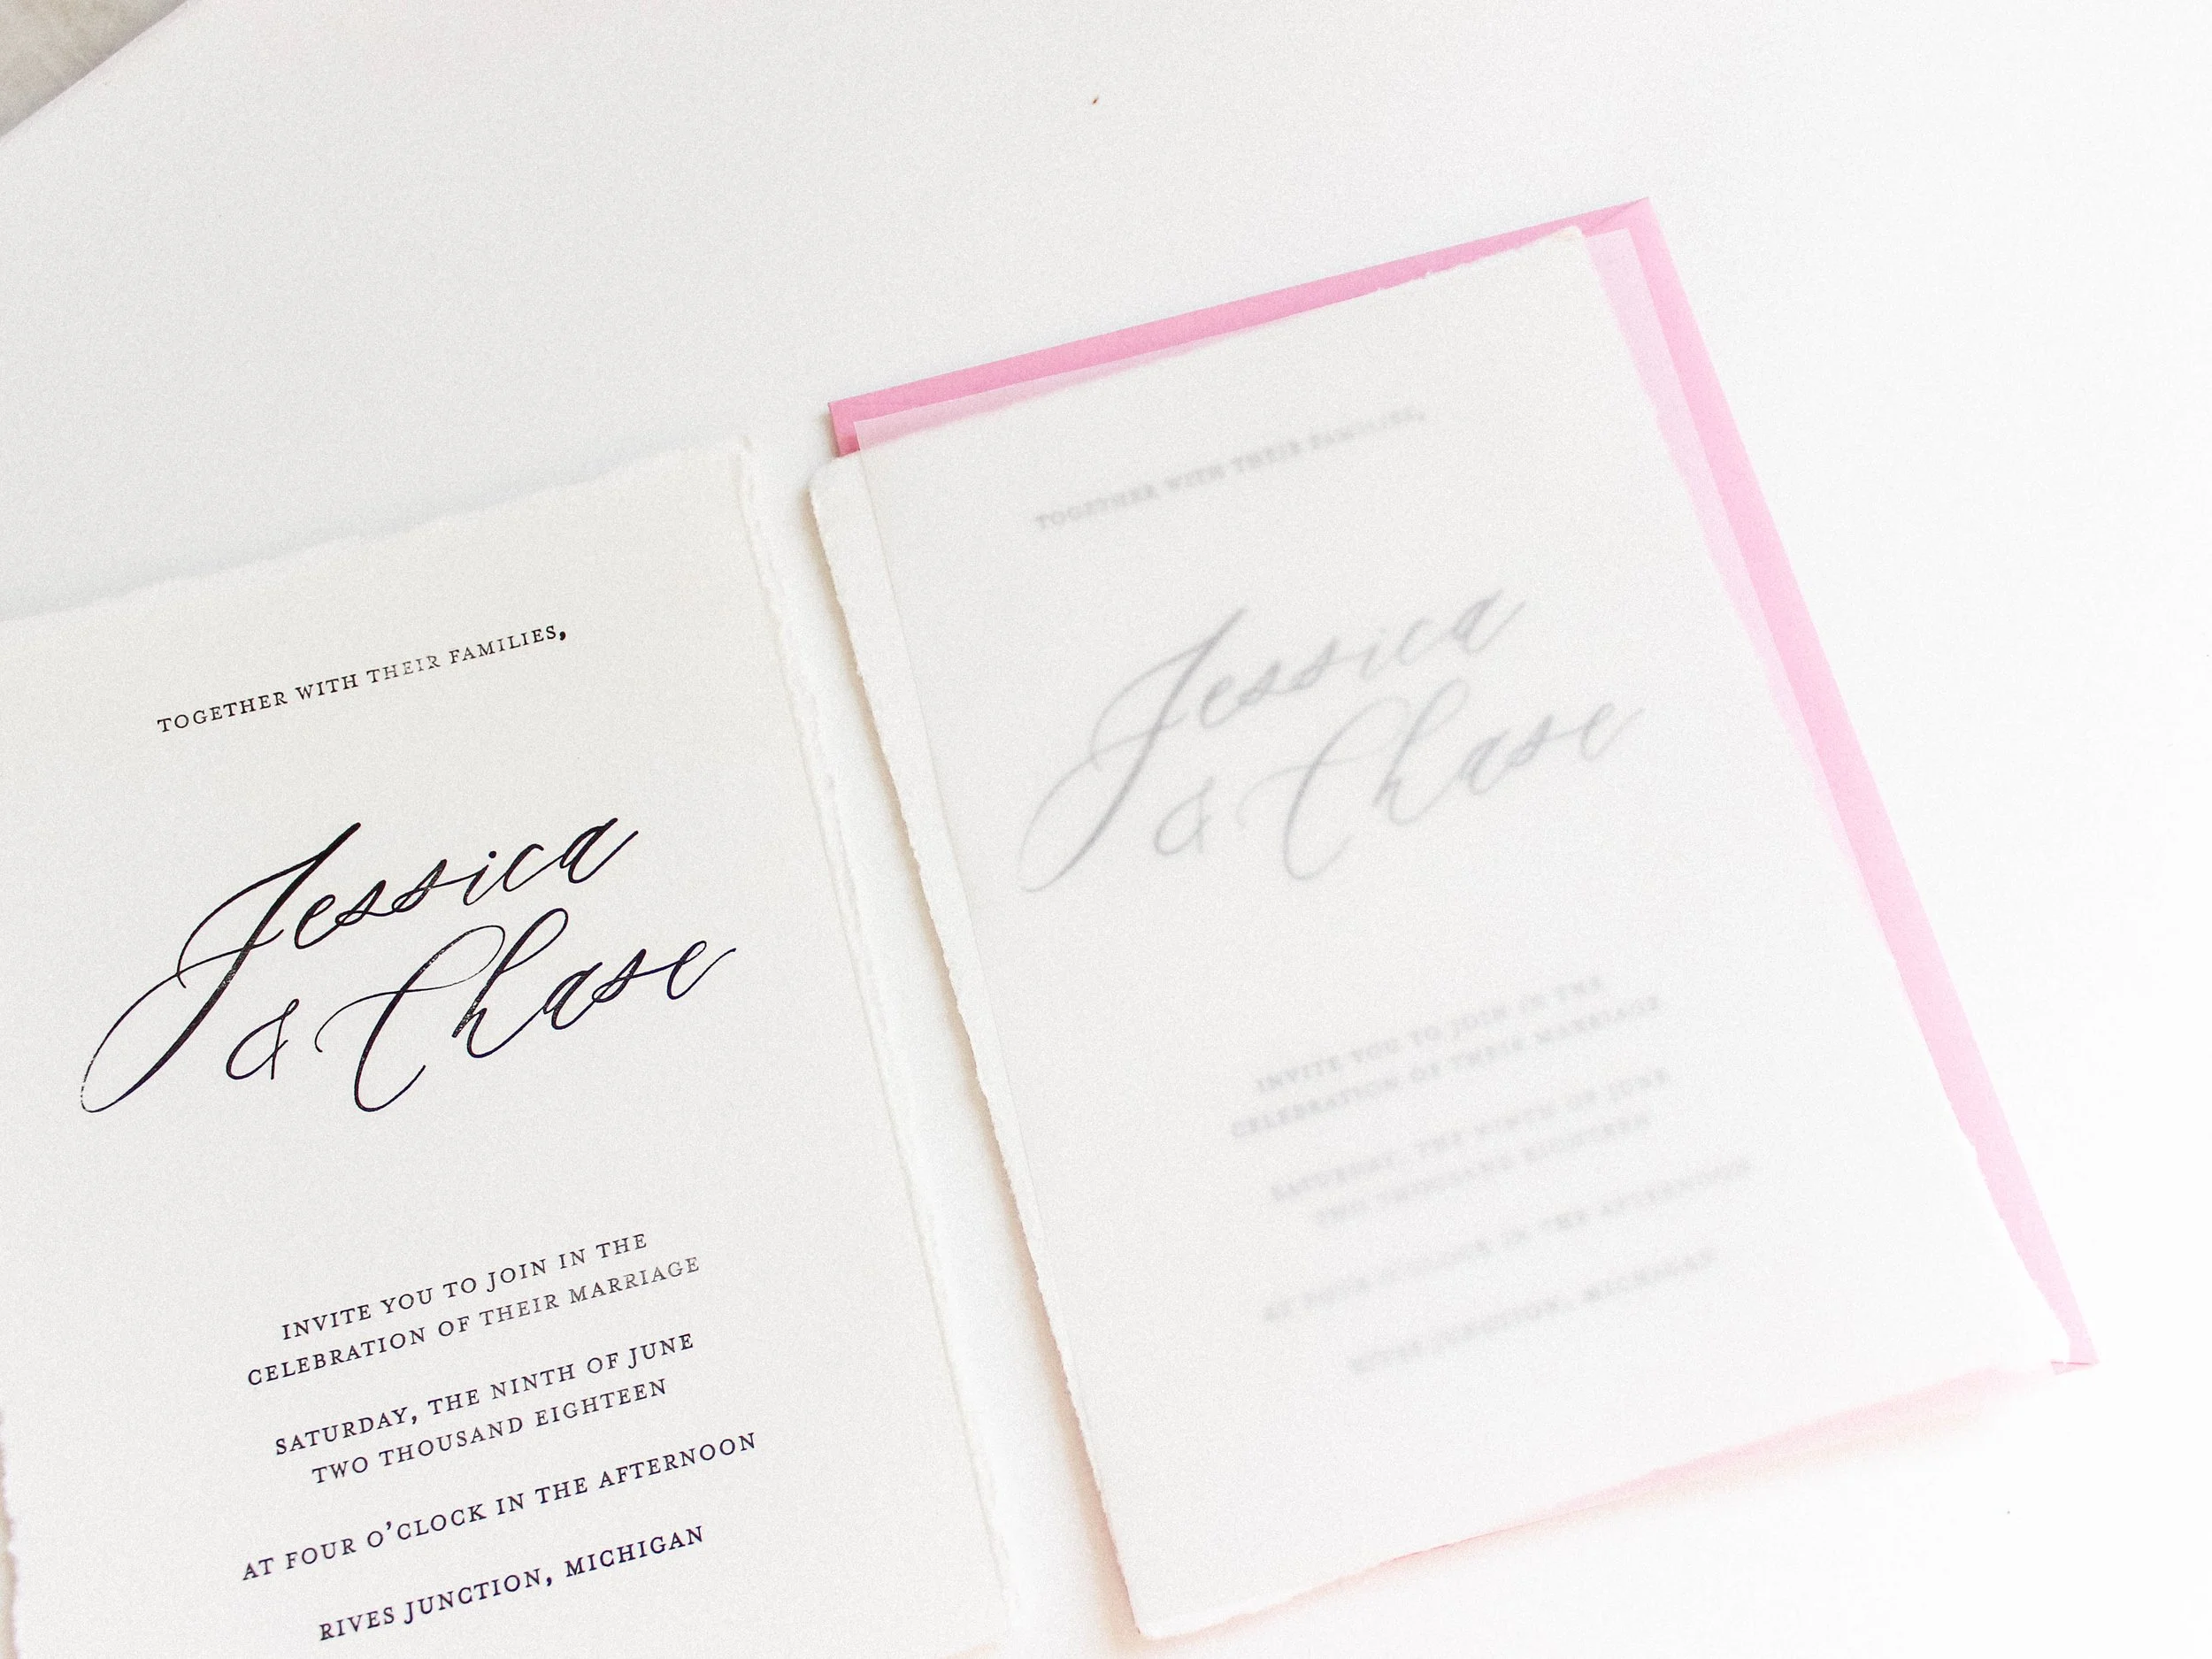 TOGETHER WITH THEIR FAMILIES,
Jessica
& Chase
INVITE YOU TO JOIN IN THE
CELEBRATION OF THEIR MARRIAGE
SATURDAY, THE NINTH OF JUNE
TWO THOUSAND EIGHTEEN
AT FOUR O'CLOCK IN THE AFTERNOON
RIVES JUNCTION, MICHIGAN
TOGETHER WITH THEIR FAMILIES,
Jessica
& Chase
INVITE YOU TO JOIN IN THE
CELEBRATION OF THEIR MARRIAGE
SATURDAY, THE NINTH OF JUNE
TWO THOUSAND EIGHTEEN
AT FOUR O'CLOCK IN THE AFTERNOON
RIVES JUNCTION, MICHIGAN